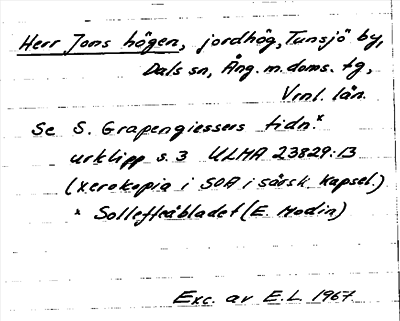 Herr Jons högen, jordhög, Tunsjö by,
Dals sn, Ång. m. doms. tg,
Vrnl. län.
Se S. Grapengiessers tidn.*
urklipp s. 3 ULMA 23829:13
(xerokopia i SOA i särsk. kapsel.)
* Sollefteåbladet (E. Modin)
Exc. av E.L. 1967